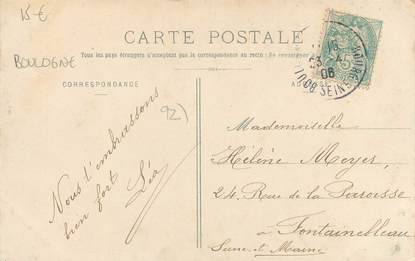 15€
BOULOGNE
92)
CARTE POSTALE
Tous les pays étrangers n'acceptent pas la correspondance au recto
CORRESPONDANCE
23
06
SEINE
5
Nous t'embrassons
bien fort
Léa
Mademoiselle
Hélène Meyer,
24, Rue de la Paroisse
à Fontainebleau
Seine-et-Marne